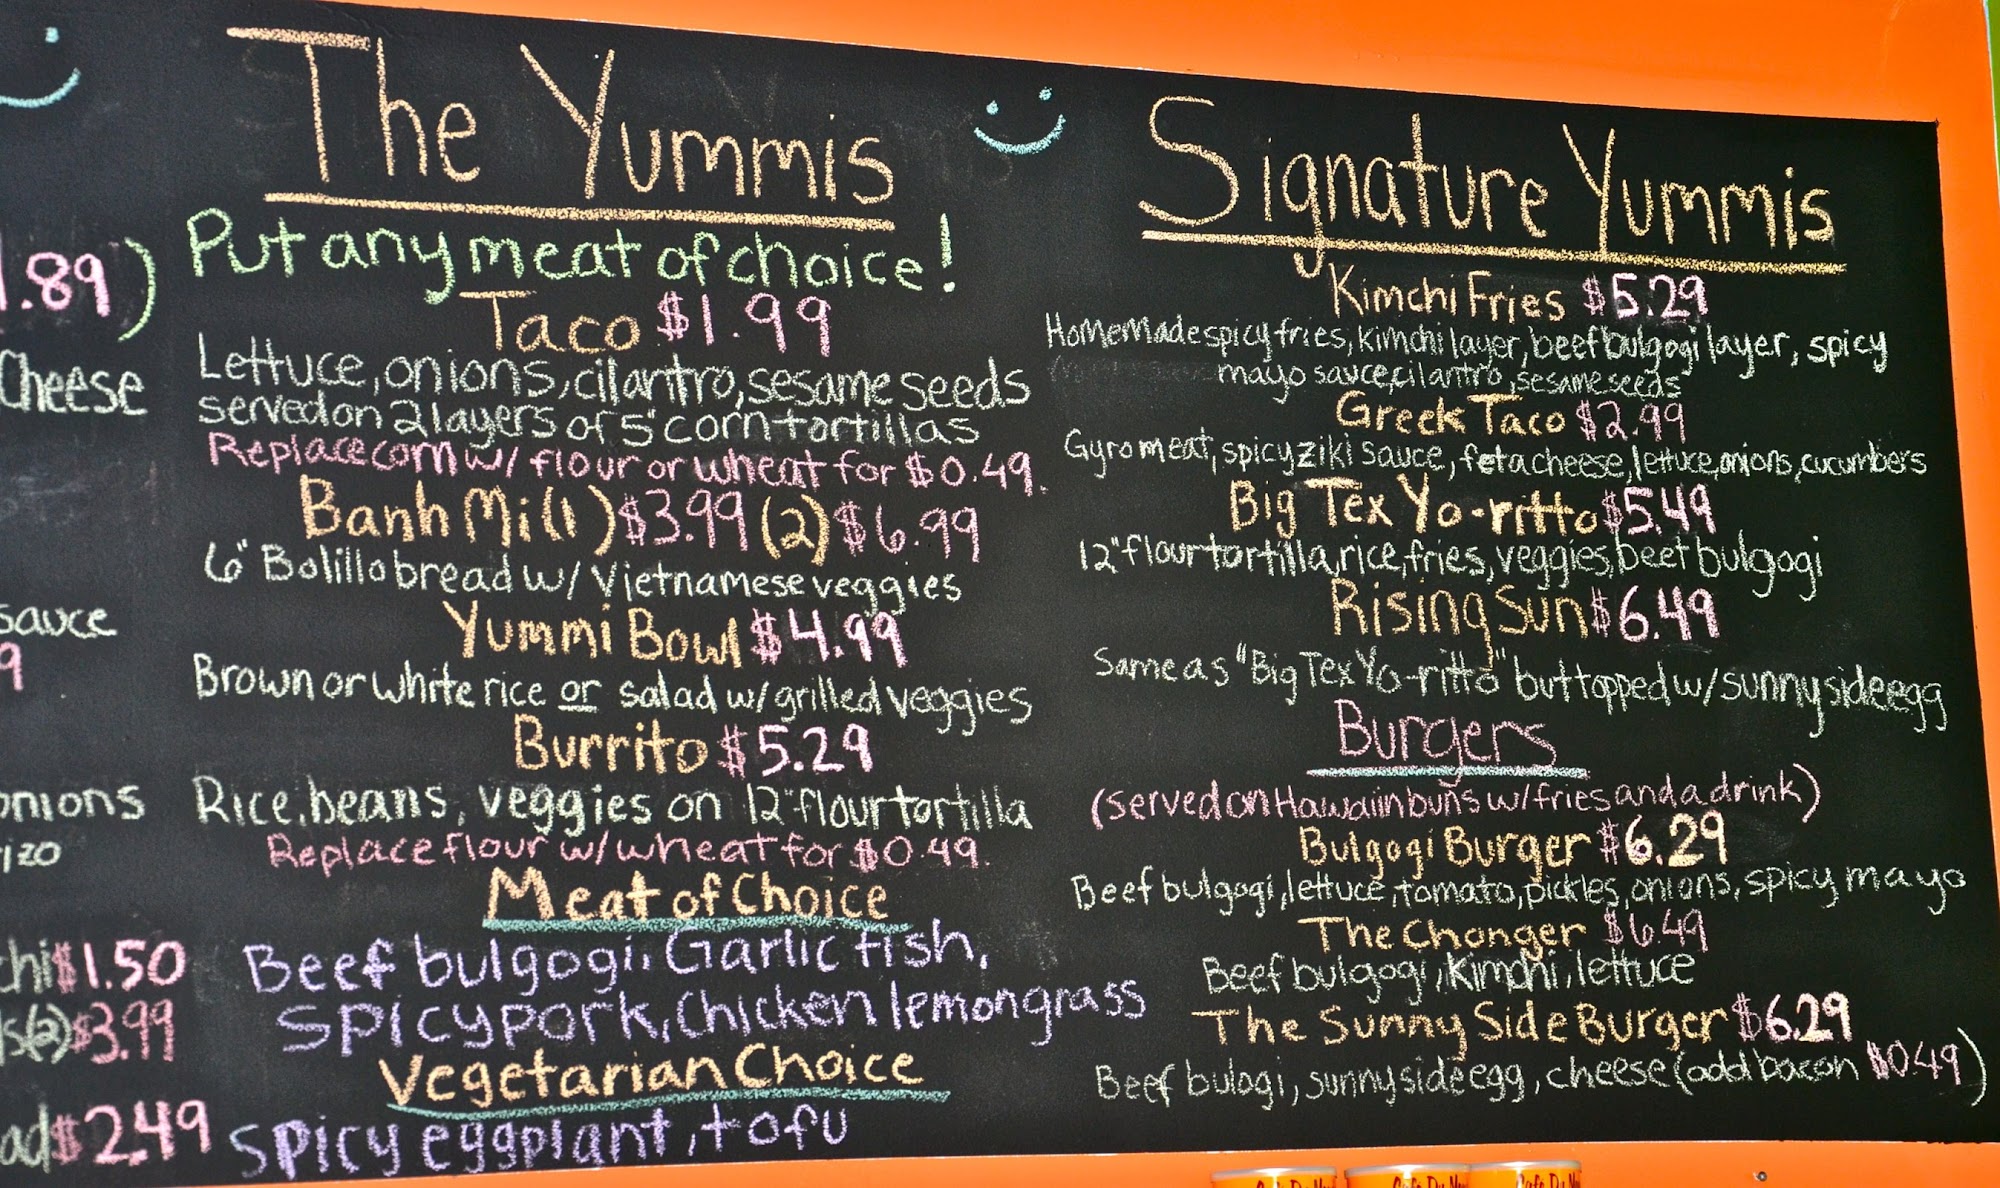 1.89)
Cheese
sauce
9
onions
rizo
chi $1.50
ls(2) $3.99
ad $2.49
The Yummis
Put any meat of choice!
Taco $1.99
Lettuce, onions, cilantro, sesame seeds
served on 2 layers of 5" corn tortillas
Replace corn w/ flour or wheat for $0.49.
Banh Mi (1) $3.99 (2) $6.99
6" Bolillo bread w/ Vietnamese veggies
Yummi Bowl $4.99
Brown or white rice or salad w/ grilled veggies
Burrito $5.29
Rice, beans, veggies on 12" flour tortilla
Replace flour w/ wheat for $0.49.
Meat of Choice
Beef bulgogi, Garlic fish,
spicy pork, Chicken lemongrass
Vegetarian Choice
spicy eggplant, tofu
Signature Yummis
Kimchi Fries $5.29
Homemade spicy fries, kimchi layer, beef bulgogi layer, spicy
mayo sauce, cilantro, sesame seeds
Greek Taco $2.99
Gyro meat, spicy ziki sauce, feta cheese, lettuce, onions, cucumbers
Big Tex Yo-ritto $5.49
12" flour tortilla, rice, fries, veggies, beef bulgogi
Rising Sun $6.49
Same as "Big Tex Yo-ritto" but topped w/ sunny side egg
Burgers
(served on Hawaiin buns w/ fries and a drink)
Bulgogi Burger $6.29
Beef bulgogi, lettuce, tomato, pickles, onions, spicy mayo
The Chonger $6.49
Beef bulgogi, kimchi, lettuce
The Sunny Side Burger $6.29
Beef bulogi, sunny side egg, cheese (add bacon $0.49)